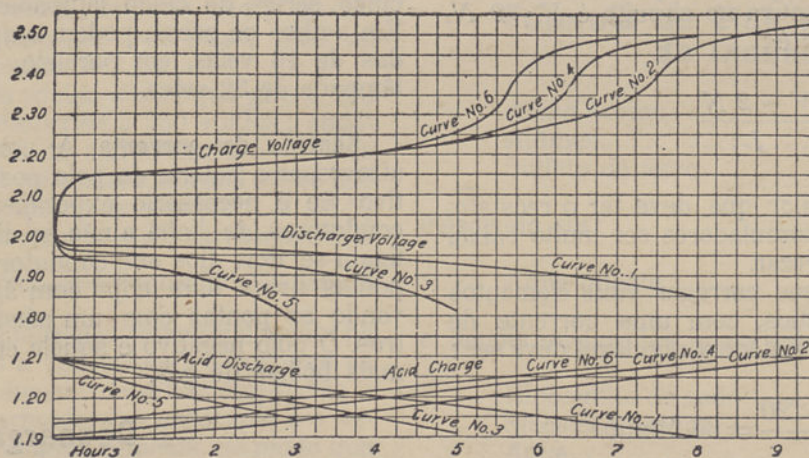 2.50
2.40
2.30
2.20
2.10
2.00
1.90
1.80
1.21
1.20
1.19
Curve No. 6
Curve No. 4
Curve No. 2
Charge Voltage
Discharge Voltage
Curve No. 1
Curve No. 3
Curve No. 5
Acid Discharge
Acid Charge
Curve No. 6
Curve No. 4
Curve No. 2
Curve No. 5
Curve No. 3
Curve No. 1
Hours 1 2 3 4 5 6 7 8 9